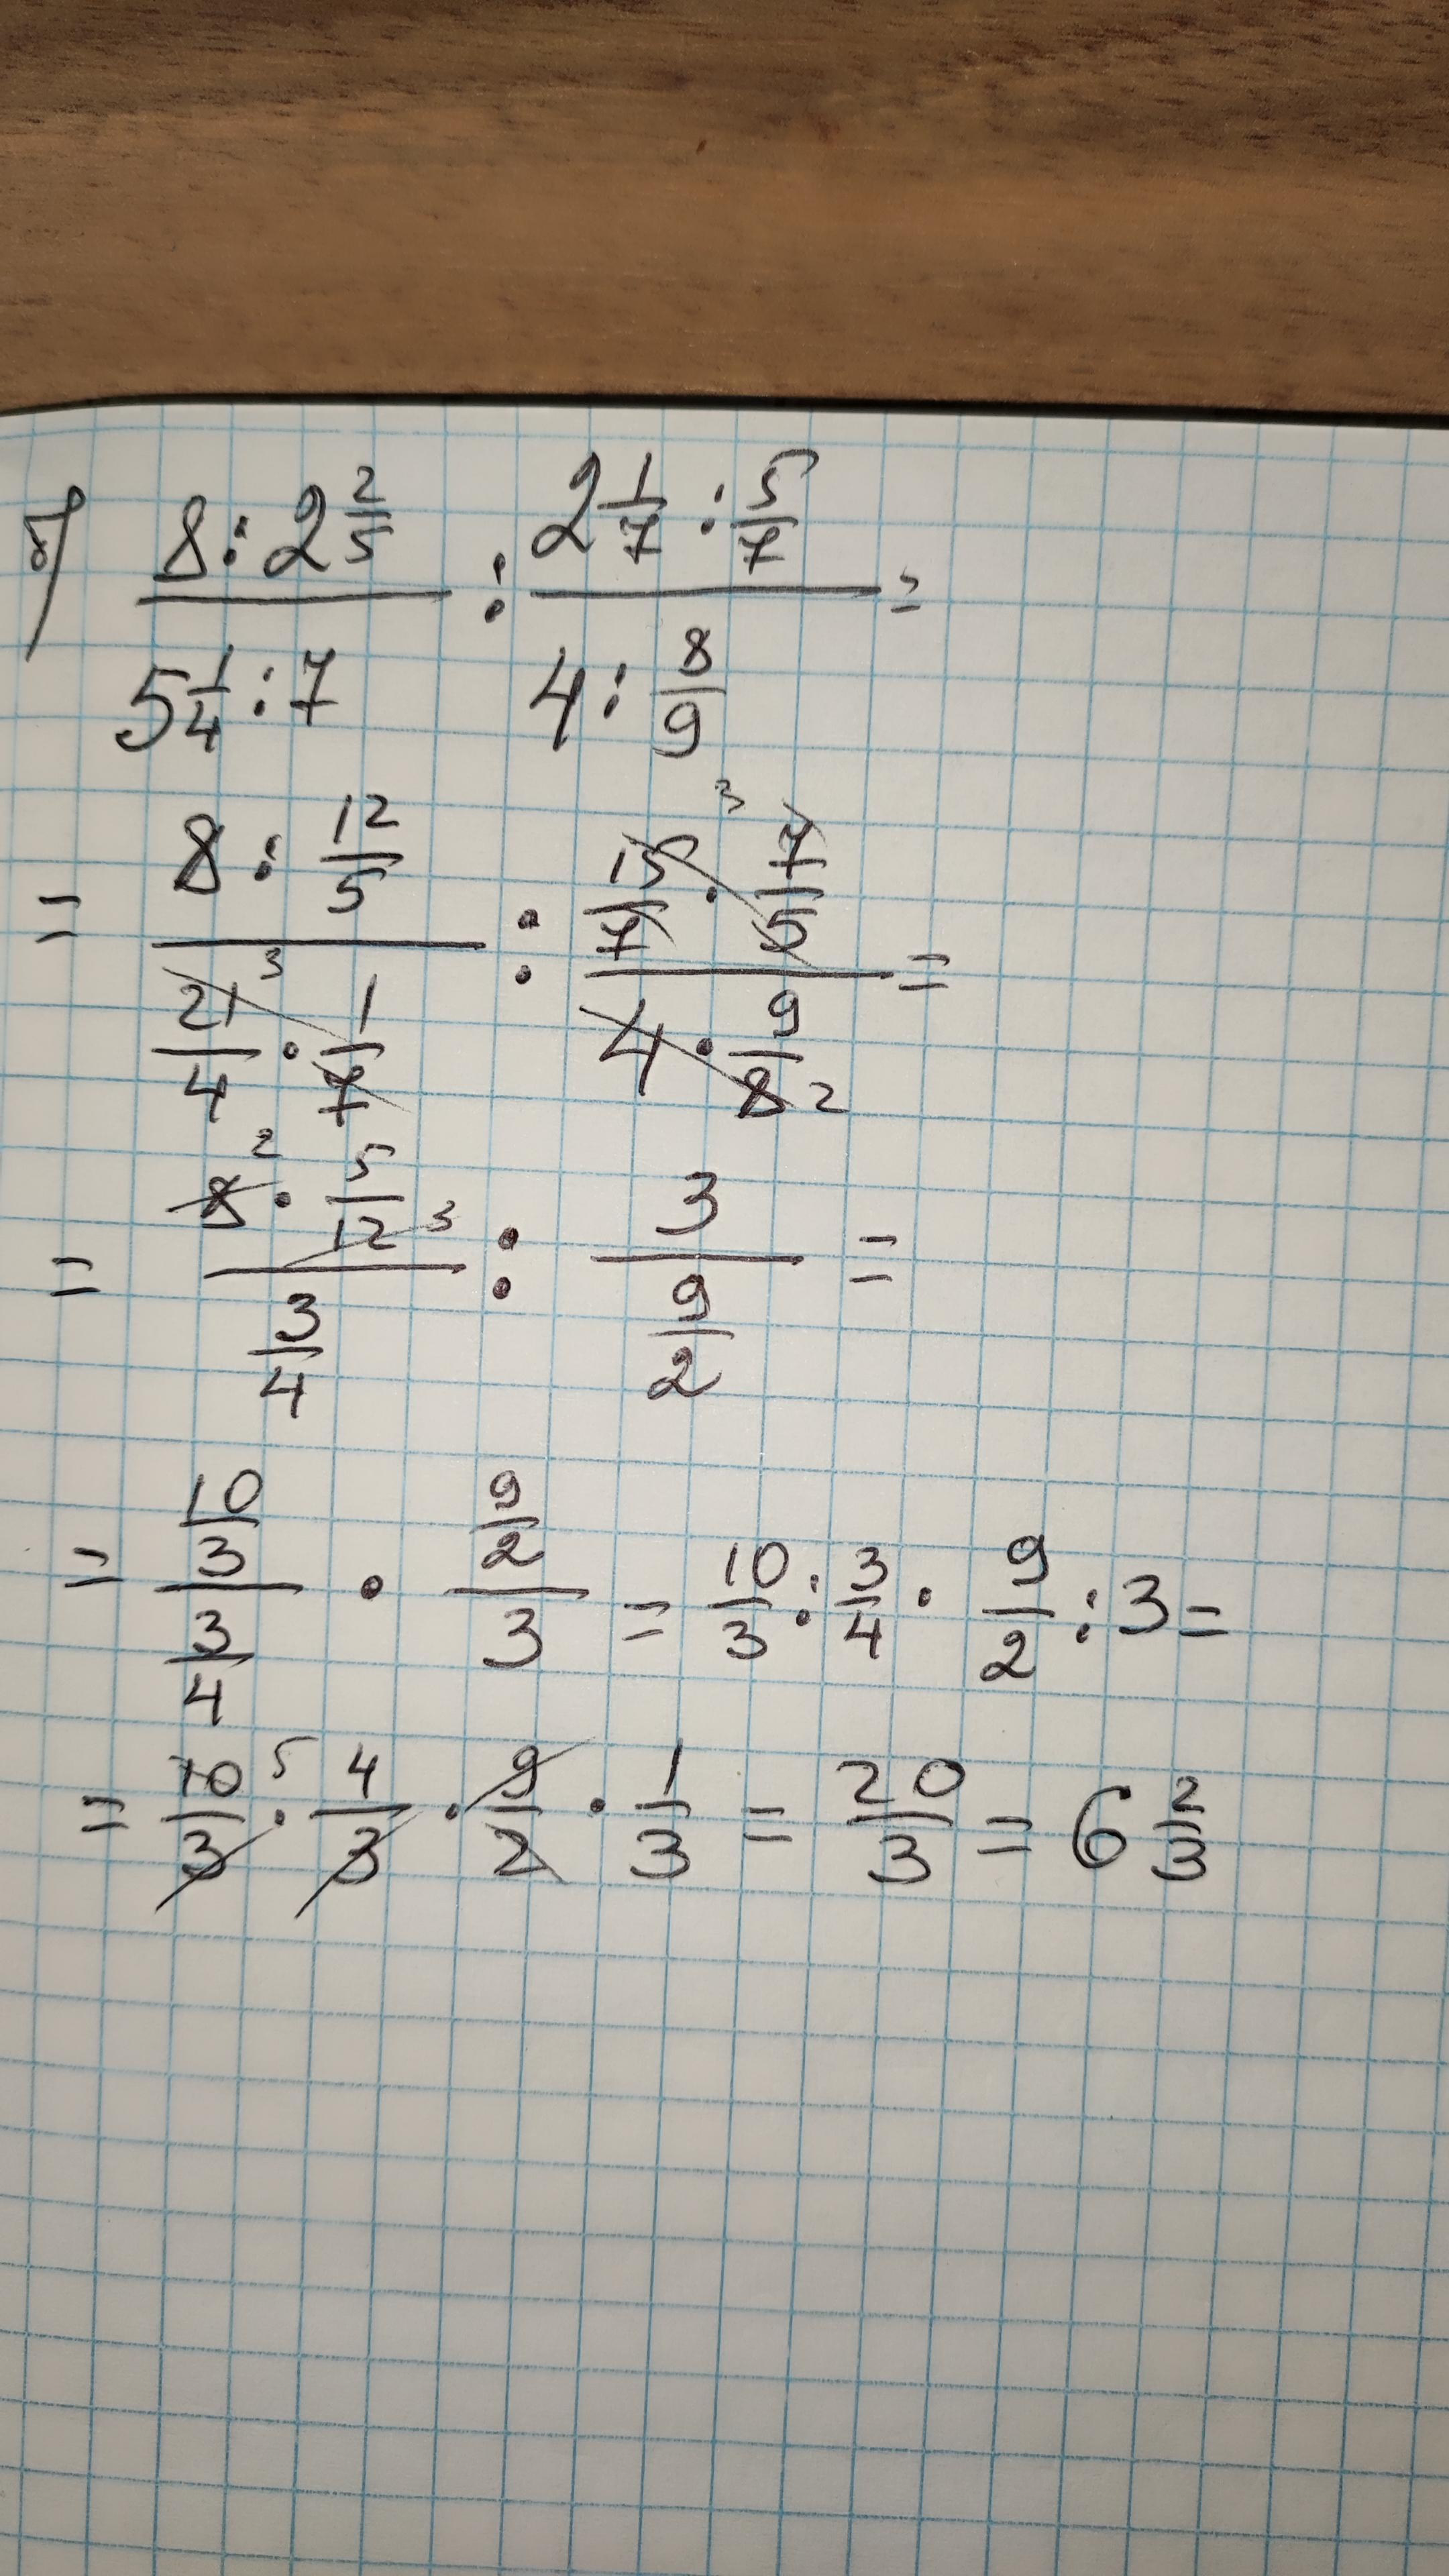 б) (8 : 2 2/5)/(5 1/4 : 7) : (2 1/7 : 5/7)/(4 : 8/9) =
= (8 : 12/5)/(21/4 3 · 1/7) : (15/7 3 · 7/5)/(4 · 9/8 2) =
= (8 2 · 5/12 3)/(3/4) : 3/(9/2) =
= (10/3)/(3/4) · (9/2)/3 = 10/3 : 3/4 · 9/2 : 3 =
= 10/3 5 · 4/3 · 9/2 · 1/3 = 20/3 = 6 2/3